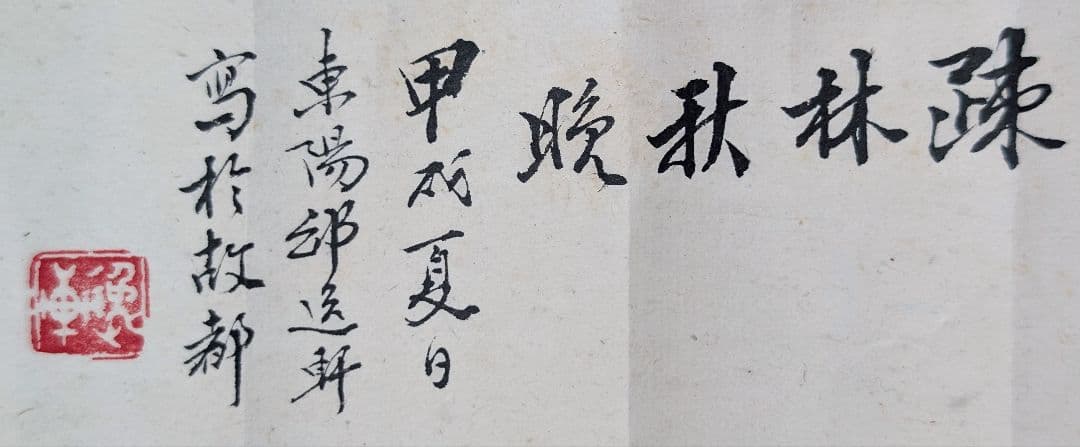 疎林秋晚
甲戌夏日
東陽邵逸軒
寫於故都